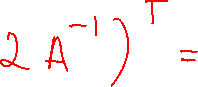 2 A^{-1})^T =